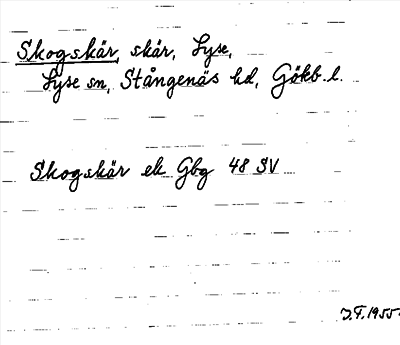 Skogskär, skär, Lyse,
Lyse sn, Stångenäs hd, Gökb. l.
Skogskär ek Gbg 48 SV
J.F. 1955